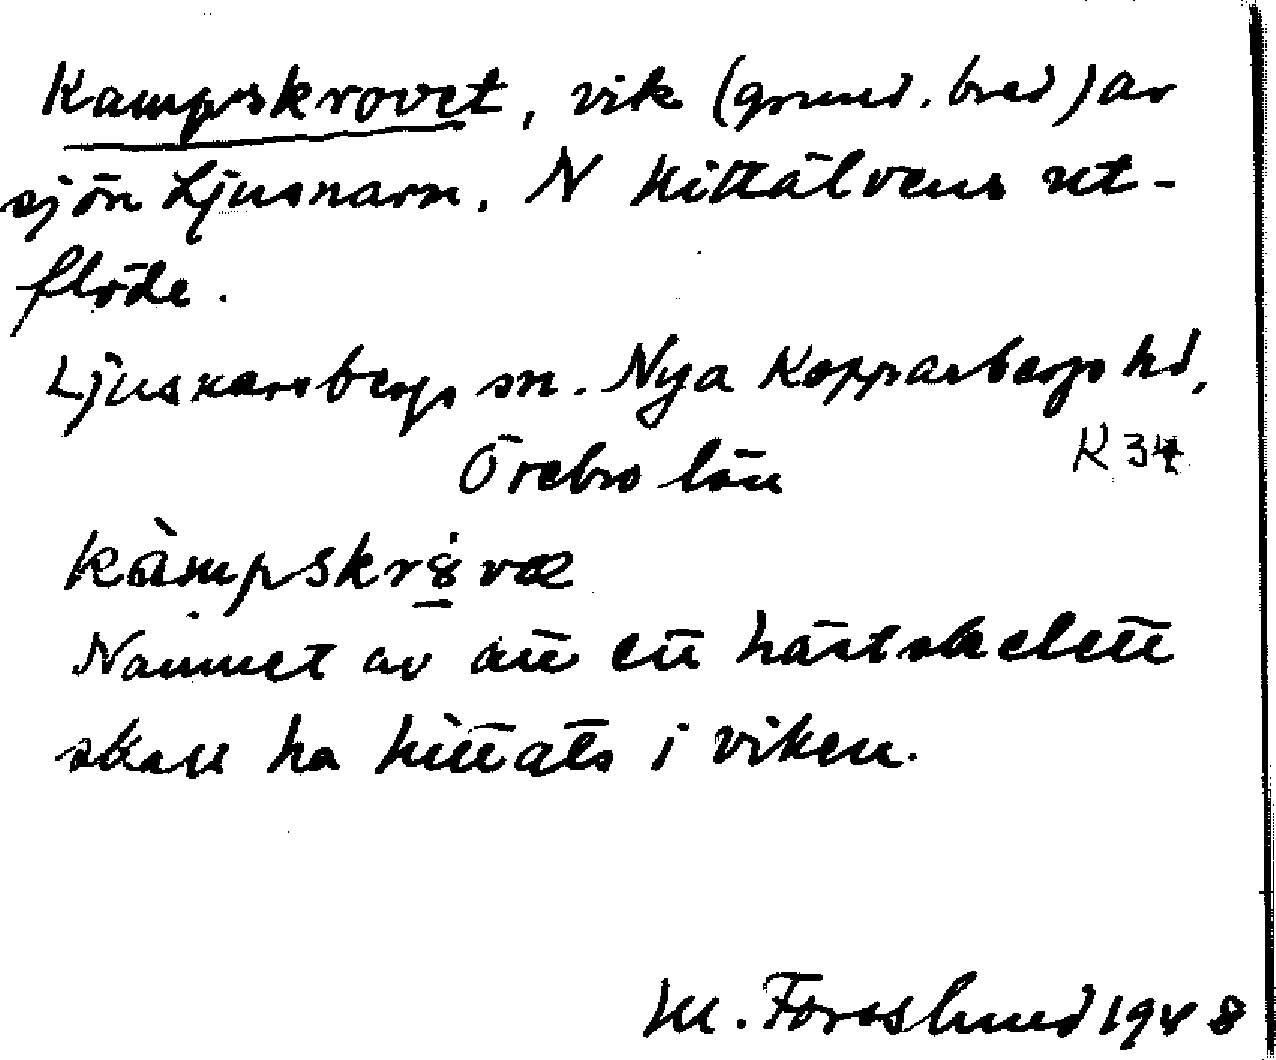 Kampskrovet, vik (grund, bred) av
sjön Ljusnaren, N Kittälvens ut-
flöde.
Ljusnarsbergs sn. Nya Kopparbergs hd,
Örebro län
K 34
Namnet av att ett hästskelett
skall ha hittats i viken.
M. Forsslund 1948